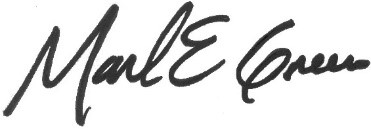 Mark E Green